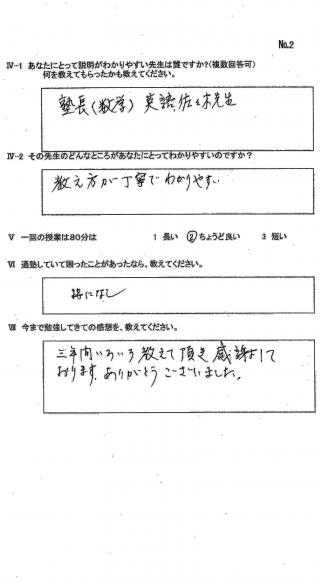 No.2
Ⅳ-1 あなたにとって説明がわかりやすい先生は誰ですか?(複数回答可)
何を教えてもらったかも教えてください。
塾長(数学) 英語佐々木先生
Ⅳ-2 その先生のどんなところがあなたにとってわかりやすいのですか?
教え方が丁寧でわかりやすい
Ⅴ 一回の授業は80分は 1 長い ②ちょうど良い 3 短い
Ⅵ 通塾していて困ったことがあったなら、教えてください。
特になし
Ⅶ 今まで勉強してきての感想を、教えてください。
三年間いろいろ教えて頂き感謝して
おります。ありがとうございました。